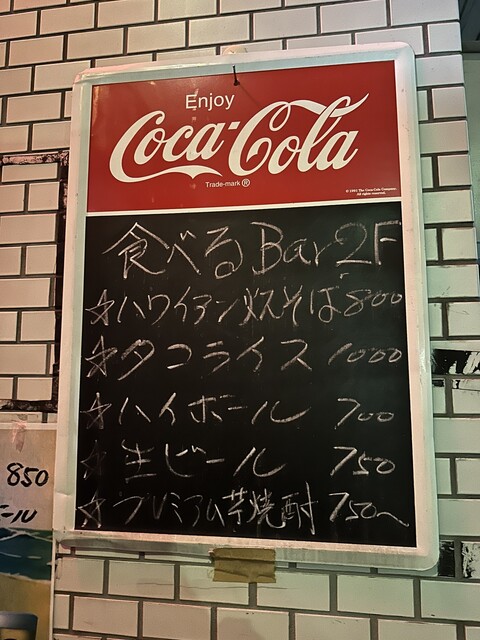 Enjoy
Coca-Cola
Trade-mark®
© 1992 The Coca-Cola Company
All rights reserved.
食べるBar 2F
☆ハワイアン焼きそば 800
☆タコライス 1000
☆ハイボール 700
☆生ビール 750
☆プレミアム芋焼酎 750〜
850
ール